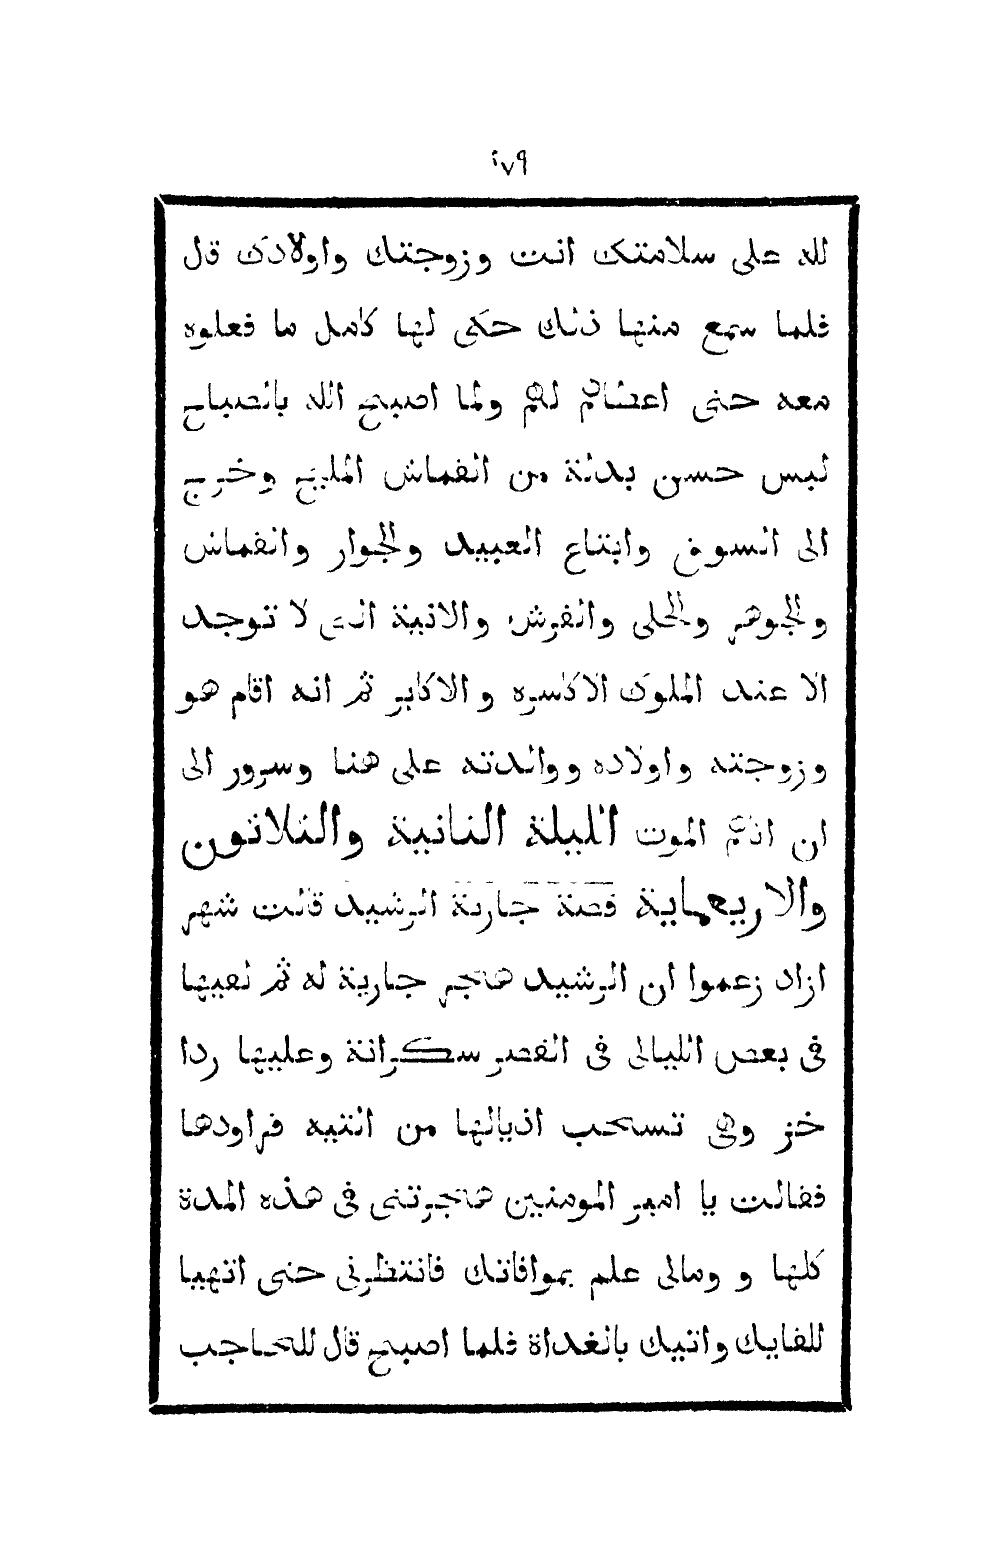 ١٧٩
لله على سلامتك انت وزوجتك واولادك قل
فلما سمع منها ذلك حكى لها كامل ما فعلوه
معه حتى اعضائم لهم ولما اصبح الله بالصباح
لبس حسن بدلة من القماش المليح وخرج
الى السوق وابتاع العبيد والجوار والقماش
والجوهر والحلى والفرش والانية التى لا توجد
الا عند الملوك الاكاسره والاكابر ثم انه اقام هو
وزوجته واولاده ووالدته على هنا وسرور الى
ان اتاهم الموت الليلة الثانية والثلاثون
والاربعماية قصة جارية الرشيد قالت شهر
ازاد زعموا ان الرشيد هاجر جارية له ثم لقيها
فى بعض الليالى فى القصر سكرانة وعليها ردا
خز وهى تسحب اذيالها من التيه فراودها
فقالت يا امير المومنين هاجرتنى فى هذه المدة
كلها و ومالى علم بموافاتك فانتظرنى حتى اتهيا
للقايك واتيك بالغداة فلما اصبح قال للحاجب